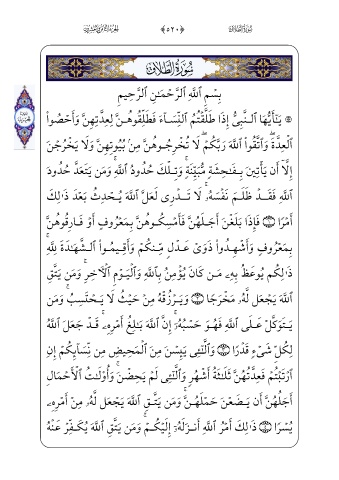 سورة الطلاق
﴿٥٢٠﴾
الجزء الثامن والعشرون
سُورَةُ الطَّلَاقِ
بِسْمِ ٱللَّهِ ٱلرَّحْمَٰنِ ٱلرَّحِيمِ
۞ يَٰٓأَيُّهَا ٱلنَّبِىُّ إِذَا طَلَّقْتُمُ ٱلنِّسَآءَ فَطَلِّقُوهُنَّ لِعِدَّتِهِنَّ وَأَحْصُوا۟
ٱلْعِدَّةَ ۖ وَٱتَّقُوا۟ ٱللَّهَ رَبَّكُمْ ۖ لَا تُخْرِجُوهُنَّ مِنۢ بُيُوتِهِنَّ وَلَا يَخْرُجْنَ
إِلَّآ أَن يَأْتِينَ بِفَٰحِشَةٍ مُّبَيِّنَةٍ ۚ وَتِلْكَ حُدُودُ ٱللَّهِ ۚ وَمَن يَتَعَدَّ حُدُودَ
ٱللَّهِ فَقَدْ ظَلَمَ نَفْسَهُۥ ۚ لَا تَدْرِى لَعَلَّ ٱللَّهَ يُحْدِثُ بَعْدَ ذَٰلِكَ
أَمْرًا ۝١ فَإِذَا بَلَغْنَ أَجَلَهُنَّ فَأَمْسِكُوهُنَّ بِمَعْرُوفٍ أَوْ فَارِقُوهُنَّ
بِمَعْرُوفٍ وَأَشْهِدُوا۟ ذَوَىْ عَدْلٍ مِّنكُمْ وَأَقِيمُوا۟ ٱلشَّهَٰدَةَ لِلَّهِ ۚ
ذَٰلِكُمْ يُوعَظُ بِهِۦ مَن كَانَ يُؤْمِنُ بِٱللَّهِ وَٱلْيَوْمِ ٱلْـَٔاخِرِ ۚ وَمَن يَتَّقِ
ٱللَّهَ يَجْعَل لَّهُۥ مَخْرَجًا ۝٢ وَيَرْزُقْهُ مِنْ حَيْثُ لَا يَحْتَسِبُ ۚ وَمَن
يَتَوَكَّلْ عَلَى ٱللَّهِ فَهُوَ حَسْبُهُۥٓ ۚ إِنَّ ٱللَّهَ بَٰلِغُ أَمْرِهِۦ ۚ قَدْ جَعَلَ ٱللَّهُ
لِكُلِّ شَىْءٍ قَدْرًا ۝٣ وَٱلَّٰٓـِٔى يَئِسْنَ مِنَ ٱلْمَحِيضِ مِن نِّسَآئِكُمْ إِنِ
ٱرْتَبْتُمْ فَعِدَّتُهُنَّ ثَلَٰثَةُ أَشْهُرٍ وَٱلَّٰٓـِٔى لَمْ يَحِضْنَ ۚ وَأُو۟لَٰتُ ٱلْأَحْمَالِ
أَجَلُهُنَّ أَن يَضَعْنَ حَمْلَهُنَّ ۚ وَمَن يَتَّقِ ٱللَّهَ يَجْعَل لَّهُۥ مِنْ أَمْرِهِۦ
يُسْرًا ۝٤ ذَٰلِكَ أَمْرُ ٱللَّهِ أَنزَلَهُۥٓ إِلَيْكُمْ ۚ وَمَن يَتَّقِ ٱللَّهَ يُكَفِّرْ عَنْهُ